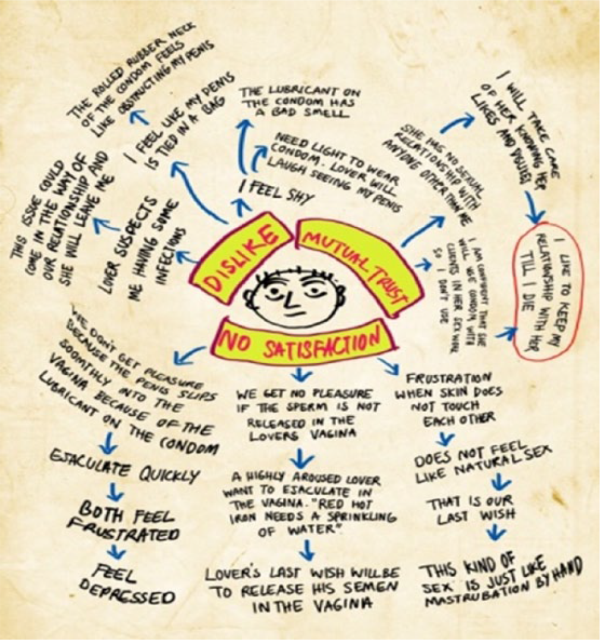 THE ROLLED RUBBER NECK
OF THE CONDOM FEELS
LIKE OBSTRUCTING MY PENIS
I FEEL LIKE MY PENIS
IS TIED IN A BAG
THE LUBRICANT ON
THE CONDOM HAS
A BAD SMELL
NEED LIGHT TO WEAR
CONDOM. LOVER WILL
LAUGH SEEING MY PENIS
I FEEL SHY
THIS ISSUE COULD
COME IN THE WAY OF
OUR RELATIONSHIP AND
SHE WILL LEAVE ME
LOVER SUSPECTS
ME HAVING SOME
INFECTIONS
DISLIKE
MUTUAL TRUST
NO SATISFACTION
SHE HAS NO SEXUAL
RELATIONSHIP WITH
ANYONE OTHER THAN ME
I WILL TAKE CARE
OF HER KNOWING HER
LIKES AND
I AM CONFIDENT THAT SHE
WILL USE CONDOM WITH
CLIENTS IN HER SEX WORK
SO I DON'T USE
I LIKE TO KEEP MY
RELATIONSHIP WITH HER
TILL I DIE
WE DON'T GET PLEASURE
BECAUSE THE PENIS SLIPS
SOOMTHLY INTO THE
VAGINA BECAUSE OF THE
LUBRICANT ON THE CONDOM
EJACULATE QUICKLY
BOTH FEEL
FRUSTRATED
FEEL
DEPRESSED
WE GET NO PLEASURE
IF THE SPERM IS NOT
RELEASED IN THE
LOVERS VAGINA
A HIGHLY AROUSED LOVER
WANT TO EJACULATE IN
THE VAGINA. "RED HOT
IRON NEEDS A SPRINKLING
OF WATER".
LOVER'S LAST WISH WILL BE
TO RELEASE HIS SEMEN
IN THE VAGINA
FRUSTRATION
WHEN SKIN DOES
NOT TOUCH
EACH OTHER
DOES NOT FEEL
LIKE NATURAL SEX
THAT IS OUR
LAST WISH
THIS KIND OF
SEX IS JUST LIKE
MASTRUBATION BY HAND